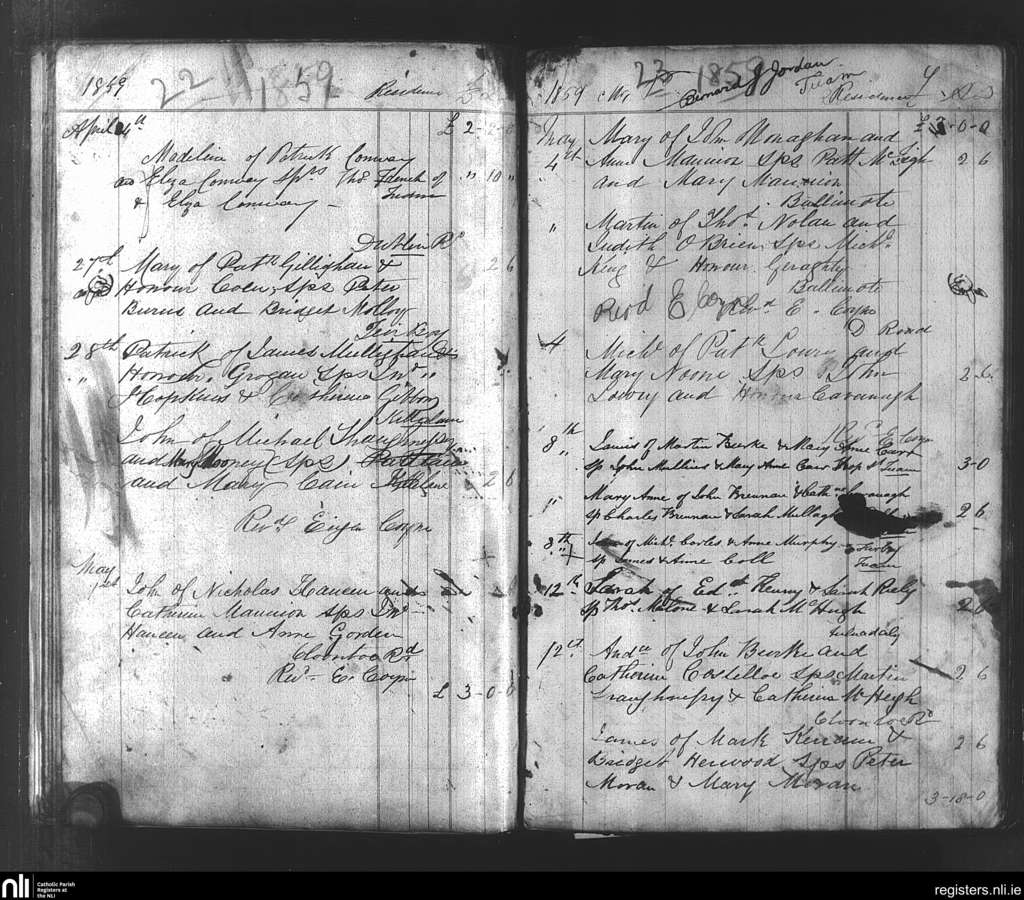 1859 22 1859 Residence
April 24th £ 2
Madeline of Patrick Conway
and Eliza Conway Sprs Thos French of " 10 "
& Eliza Conway Tuam
Dublin Rd
27th Mary of Patk Gillighan & 2 6
Honour Coen, Sps Peter
Burns and Bridget Molloy
28th Patrick of James
" Honour Grogan Sps Jno
Hopkins & Catherine Gibbons
John of Michael Shaughnessy
and Mary Mooney (Sps) Patt 2 6
and Mary Cain
Revd Eugn Coyne
May
1st John of Nicholas Haneen and
Catherine Mannion Sps Jno
Haneen and Anne Gorden
Cloontoo Rd
Revd E. Coyne
£ 3-0-0
1859 23 1859 Bernard J Jordan
Tuam
Residence
May Mary of John Monaghan and £ 3-0-0
4th Anne Mannion Sps Patt McHugh 2 6
and Mary Mannion
Ballinote
" Martin of Thos Nolan and
Judith O'Brien Sps Michl
King & Honour Geraghty
Ballinote
Revd E Coyne Revd E. Coyne
D Road
4 Michl of Patk and
Mary Noone Sps John 2-6
Lowry and Honour Cavanagh
Revd E Coyne
8th James of Martin Burke & Mary Anne Carr
Sp John Mullins & Mary Anne Carr Bishop St Tuam 3-0
" Mary Anne of John Brennan & Cath Cavanagh
Sp Charles Brennan & Sarah 2 6
8th of Michl Corles & Anne Murphy
" Sp James & Anne Coll Tuam
12th Sarah of Edwd Henry & Sarah Reily
Sp Thos Malone & Sarah McHugh
12th Andw of John Burke and
Catherine Costelloe Sps Martin 2 6
Shaughnessy & Catherine McHugh
Cloontoo Rd
James of Mark Kerrane & 2 6
Bridget Henwood Sps Peter
Moran & Mary Moran
3-18-0
nli Catholic Parish
Registers at
the NLI
registers.nli.ie